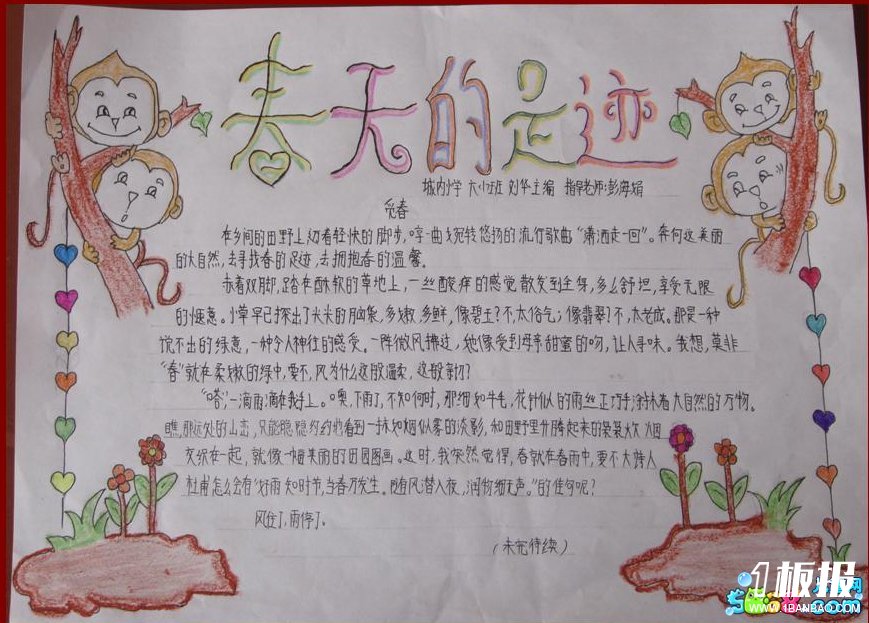 春天的足迹
城内小学 六(2)班 刘华主编 指导老师:彭海娟
觅春
在乡间的田野上迈着轻快的脚步,哼一曲婉转悠扬的流行歌曲“潇洒走一回”。奔向这美丽
的大自然,去寻找春的足迹,去拥抱春的温馨。
赤着双脚,踏在酥软的草地上,一丝酸痒的感觉散发到全身,多么舒坦,享受无限
的惬意。小草早已探出了尖尖的脑袋,多嫩,多鲜,像碧玉?不,太俗气;像翡翠?不,太老成。那是一种
说不出的绿意,一种令人神往的感受。一阵微风拂过,她像受到母亲甜蜜的吻,让人寻味。我想,莫非
“春”就在柔嫩的绿中,要不,风为什么这般温柔,这般亲切?
“嗒”,一滴雨滴在我手上。噢,下雨了,不知何时,那细如牛毛,花针似的雨丝正巧手涂抹着大自然的万物。
瞧,那远处的山峦,只能隐隐约约的看到一抹如烟似雾的淡影,和田野里升腾起来的袅袅炊烟
交织在一起,就像一幅美丽的田园图画。这时,我突然觉得,春就在春雨中,要不大诗人
杜甫怎么会有“好雨知时节,当春乃发生。随风潜入夜,润物细无声。”的佳句呢?
风住了,雨停了。
(未完待续)
1板报
WWW.1BANBAO.COM
.com